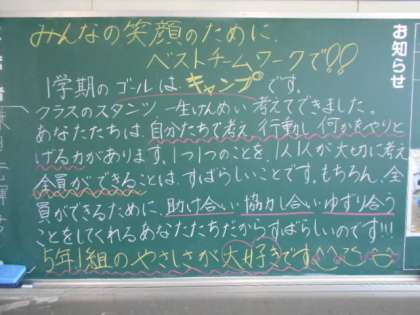 みんなの笑顔のために、
ベストチームワークで!!
1学期のゴールはキャンプです。
クラスのスタンツ 一生けんめい考えてできました。
あなたたちは、自分たちで考え 行動し 何かをやりと
げる力があります。1つ1つのことを、1人1人が大切に考え
全員ができることは、すばらしいことです。もちろん、全
員ができるために、助け合い 協力し合い ゆずり合う
ことをしてくれるあなたたちだからすばらしいのです!!!
5年1組のやさしさが大好きです
お知らせ